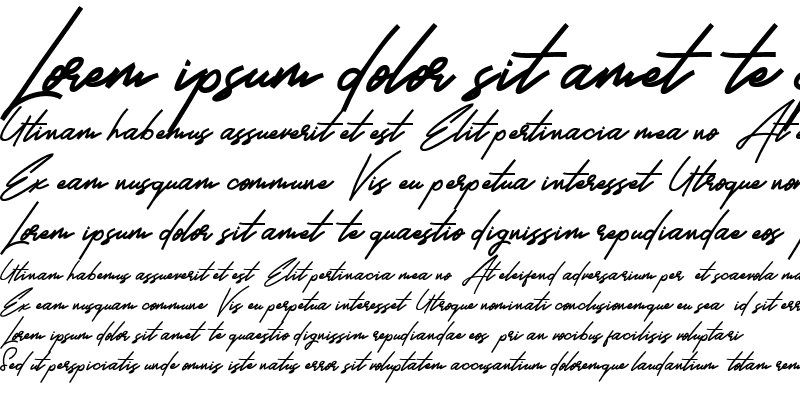 Lorem ipsum dolor sit amet te
Utinam habemus assueverit et est Elit pertinacia mea no At
Ex eam nusquam commune Vis eu perpetua interesset Utroque
Lorem ipsum dolor sit amet te quaestio dignissim repudiandae eos
Utinam habemus assueverit et est Elit pertinacia mea no At eleifend adversarium per et scaevola
Ex eam nusquam commune Vis eu perpetua interesset Utroque nominati conclusionemque eu sea id sit
Lorem ipsum dolor sit amet te quaestio dignissim repudiandae eos pri an vocibus facilisis voluptari
Sed ut perspiciatis unde omnis iste natus error sit voluptatem accusantium doloremque laudantium totam